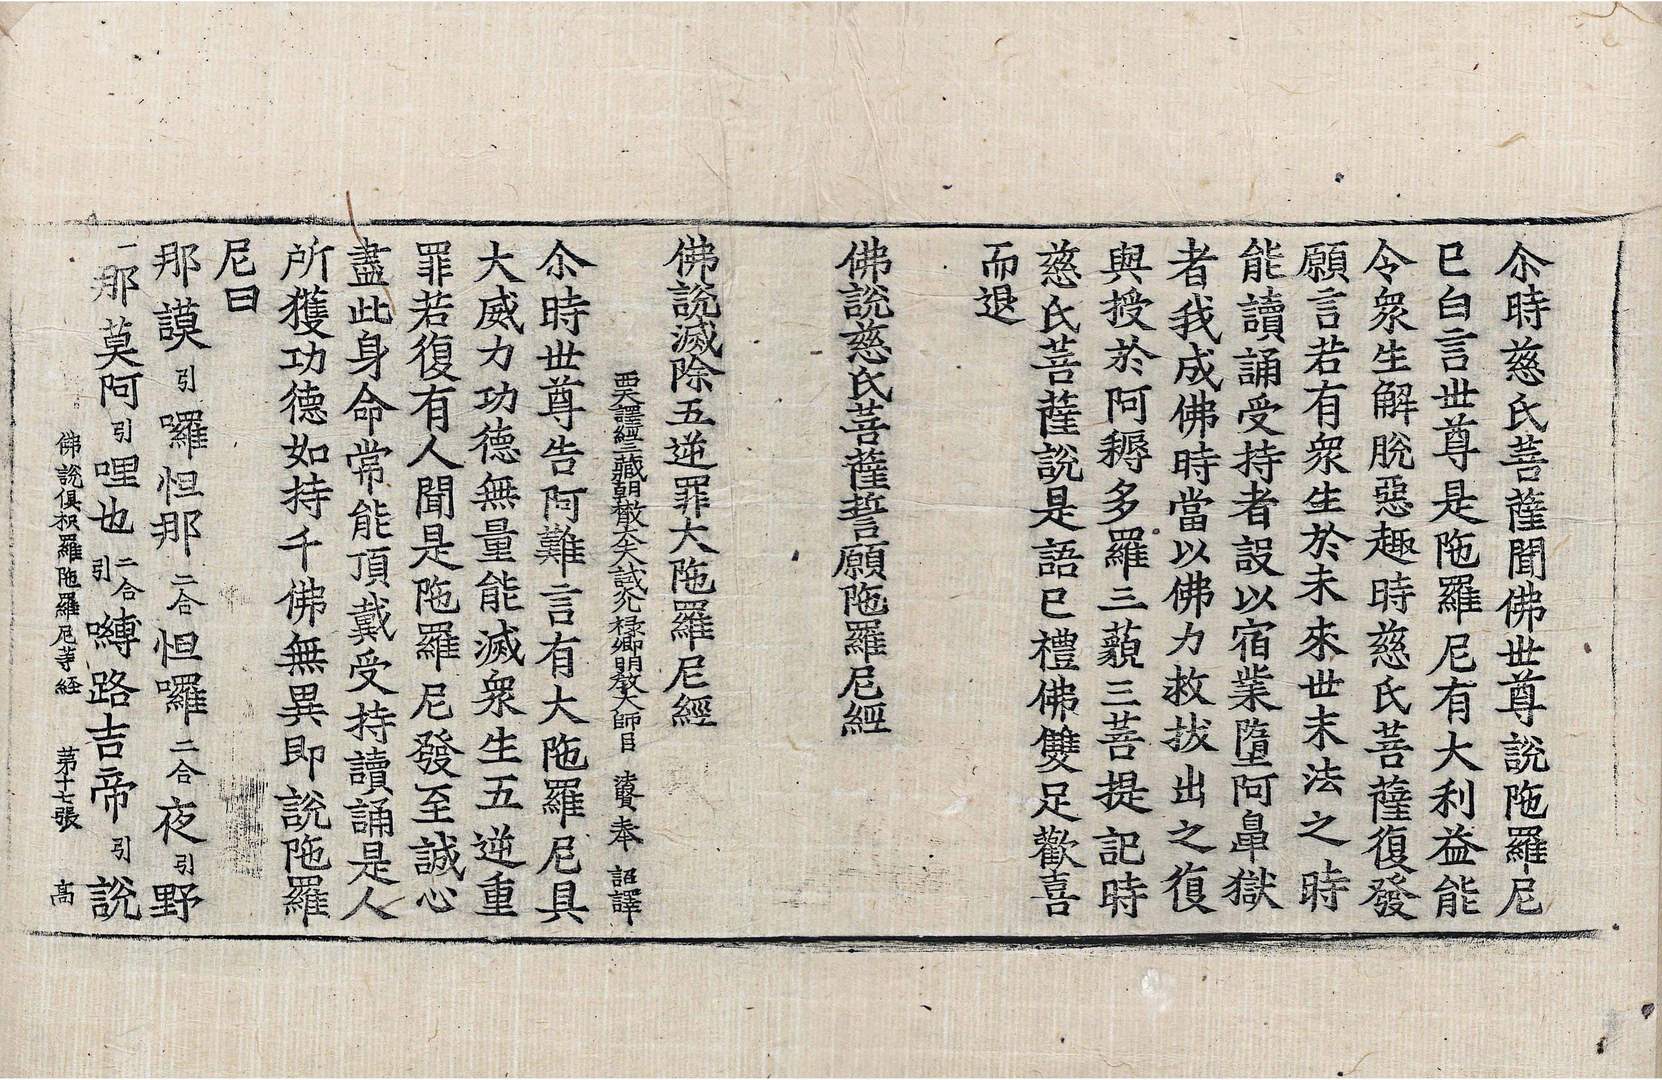 尒時慈氏菩薩聞佛世尊說陁羅尼
已白言世尊是陁羅尼有大利益能
令衆生解脫惡趣時慈氏菩薩復發
願言若有衆生於未來世末法之時
能讀誦受持者設以宿業墮阿鼻獄
者我成佛時當以佛力救拔出之復
與授於阿耨多羅三藐三菩提記時
慈氏菩薩說是語已禮佛雙足歡喜
而退
佛說慈氏菩薩誓願陁羅尼經
佛說滅除五逆罪大陁羅尼經
西天譯經三藏朝散大夫試光祿卿明教大師臣 法賢奉 詔譯
尒時世尊告阿難言有大陁羅尼具
大威力功德無量能滅衆生五逆重
罪若復有人聞是陁羅尼發至誠心
盡此身命常能頂戴受持讀誦是人
所獲功德如持千佛無異即說陁羅
尼曰
那謨引囉怛那二合怛囉二合夜引野
一那莫阿引哩也二合引嚩路吉帝引說
佛說俱枳羅陁羅尼等経 第十七張 高